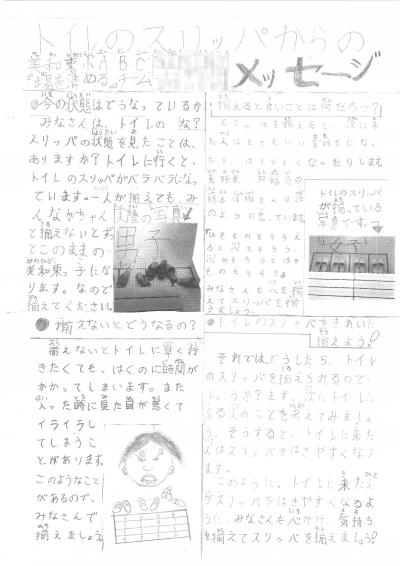 トイレのスリッパからの
メッセージ
美和東京ABC
を める チーム
今の状態はどうなっているかな?
みなさんは、トイレの
スリッパの状態を見たことは、
ありますか?トイレに行くと、
トイレのスリッパがバラバラになっ
ています。一人が揃えても、み
んながちゃん
と揃えないとず
とこのままの
美和東っ子にな
ります。なので
揃えてください。
実際の写真
男子
揃えないとどうなるの?
揃えないとトイレに早く行
きたくても、はくのに時間が
かかってしまいます。また
入った時に見た目が悪くて
イライラし
てしまうこ
とがあります。
このようなこと
があるので、
みなさんで
揃えましょう。
揃えると良いことは何だろう?
スリッパを揃えると、次に来
た人はとてもいい気持ちにな
たり、はきやすくなったりします。
のように言っています。
はきものをそろえ
ると心もそろう。
心がそろうとはき
ものもそろう。
みなさんも心を揃
えてスリッパを揃え
ましょう。
トイレのスリッパ
が揃っている
写真です。
女子
トイレのスリッパをきれいに
揃えよう!
それでは、どうしたら、トイレ
のスリッパを揃えられるので
しょうか?まず、次にトイレに
入る人のことを考えてみましょ
う。そうすると、トイレに来た
人はスリッパをはきやすくなり
ます。
このように、トイレに来た人
がスリッパをはきやすくなるよ
うに、みなさんも心がけ、気持ち
を揃えてスリッパを揃えましょう!